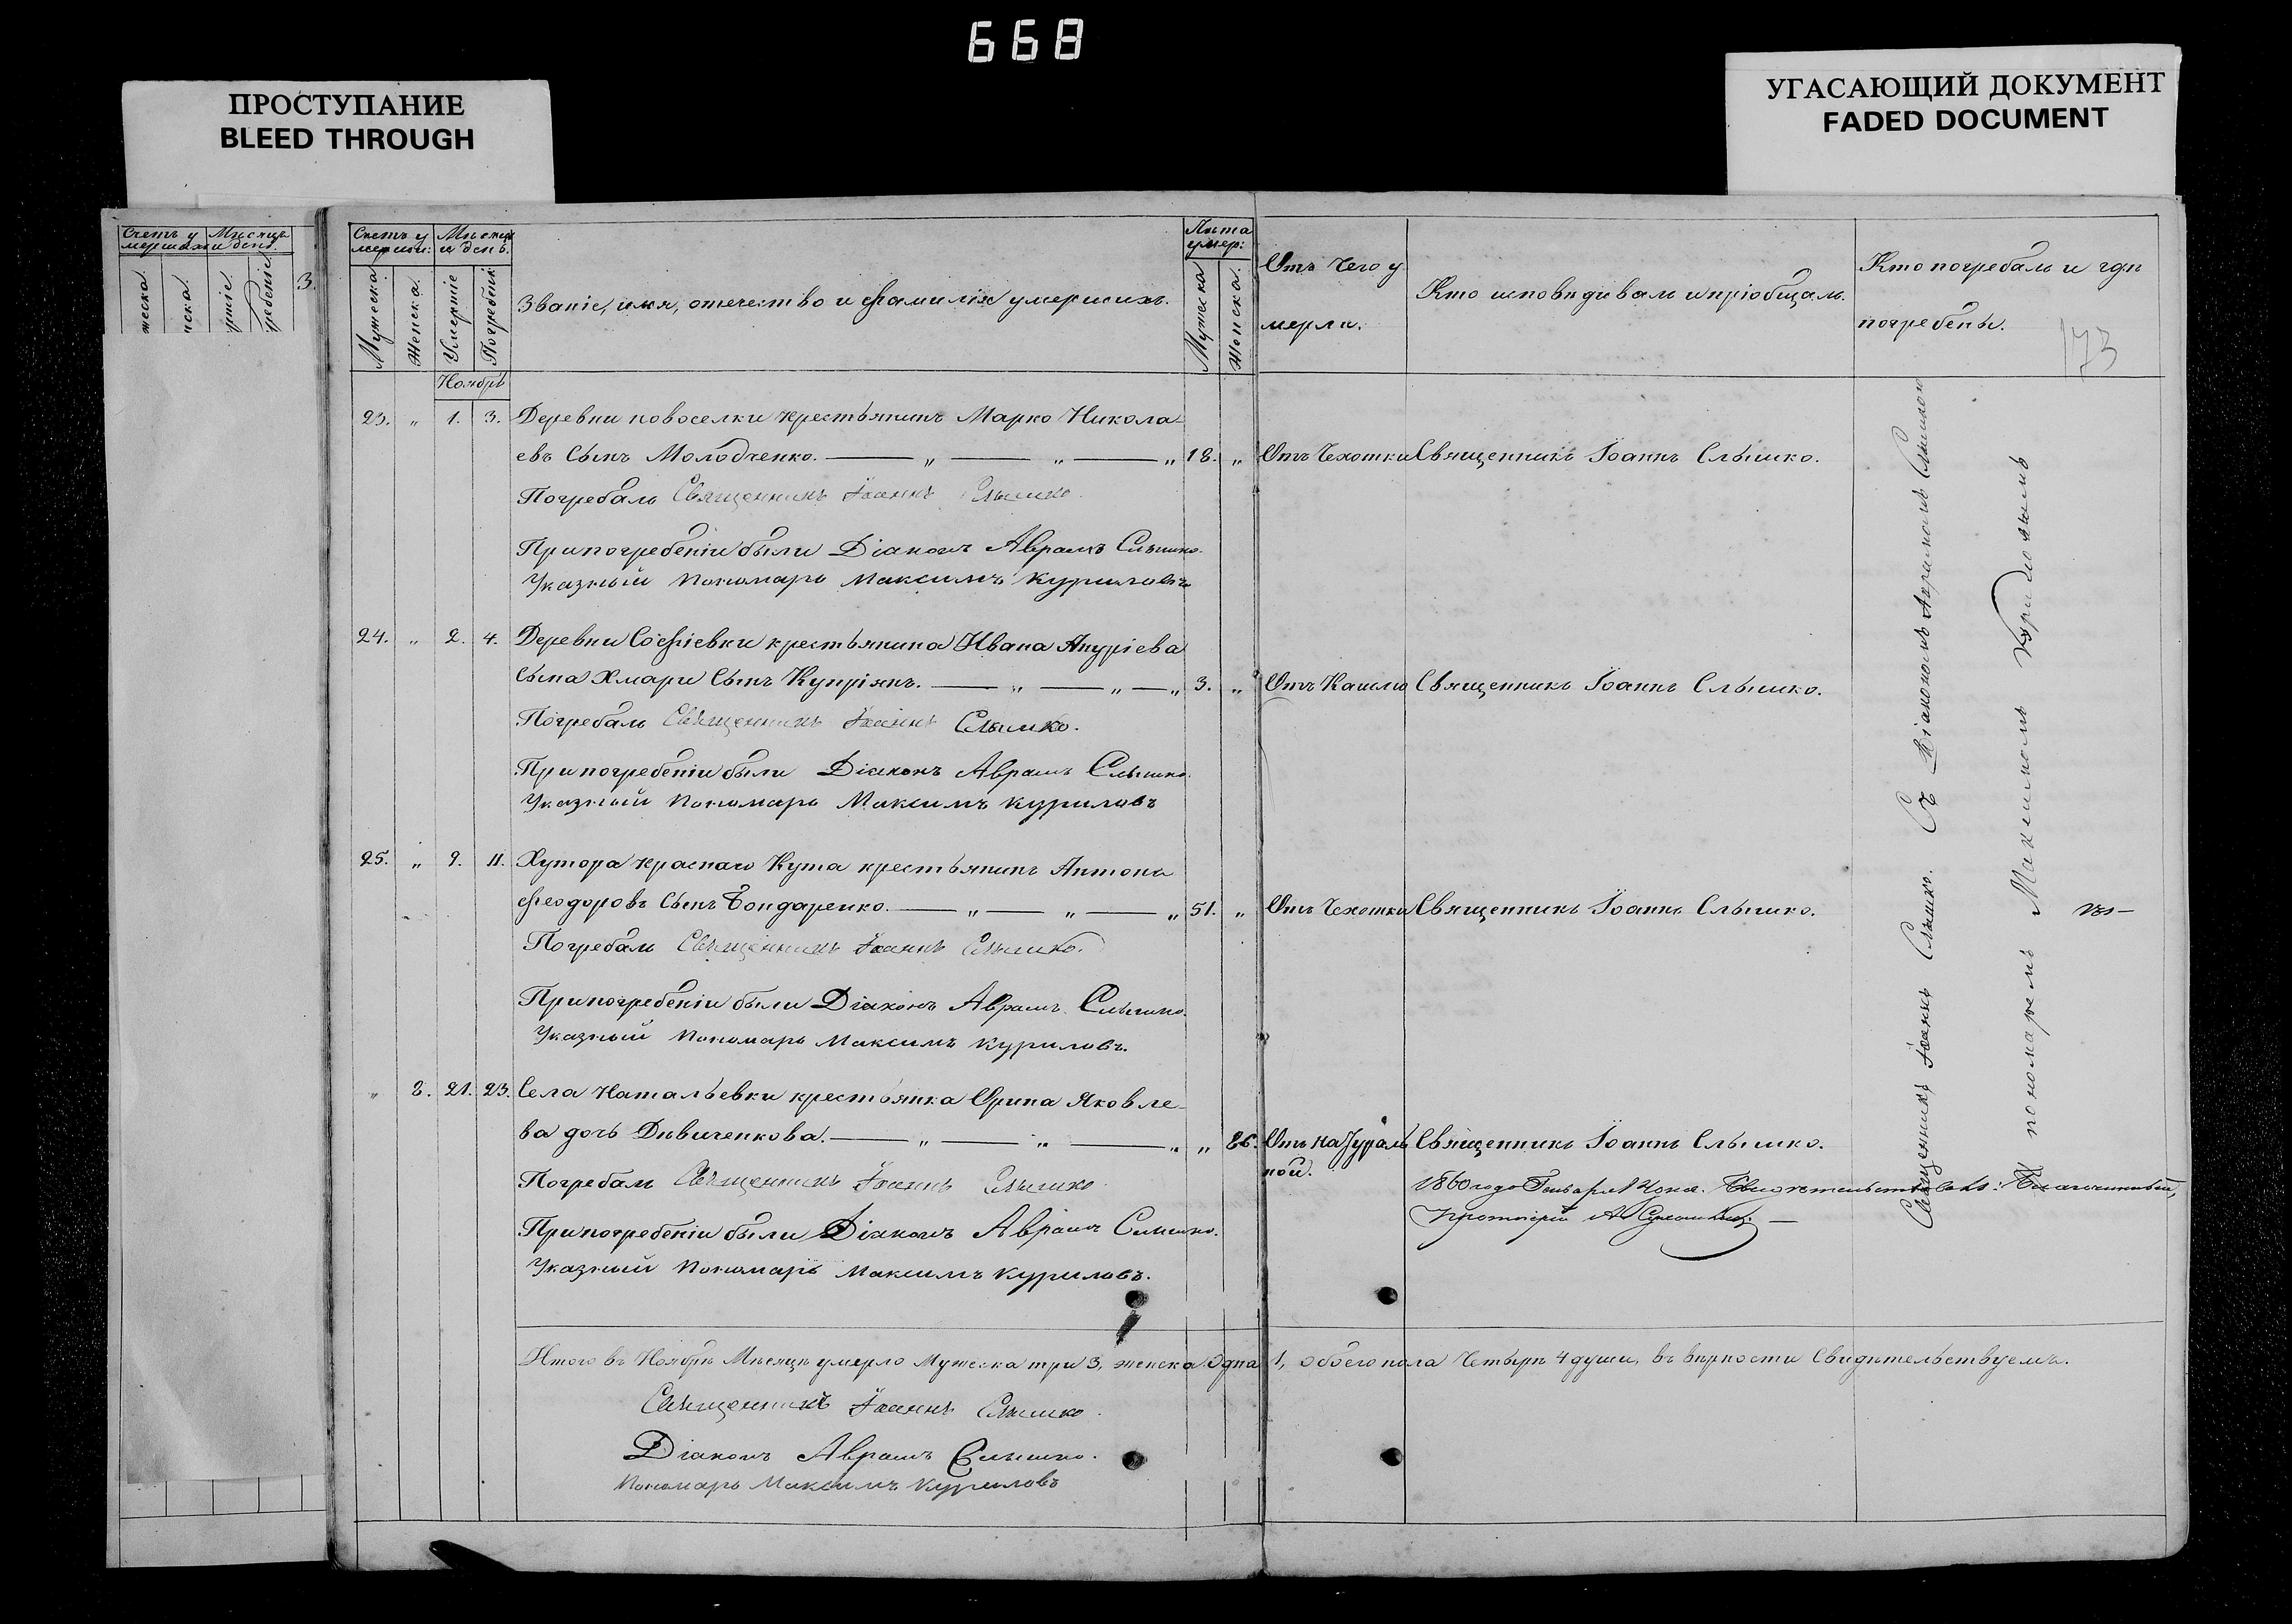 668
ПРОСТУПАНИЕ
BLEED THROUGH
УГАСАЮЩИЙ ДОКУМЕНТ
FADED DOCUMENT
Счетъ у Мѣсяцъ
мершихъ и день.
3.
Счетъ у Мѣсяцъ
мерши: и день.
Мужеска Женска. Умертіе Погребеніе
Званіе, имя, отечество и фамилія умершихъ.
Лѣта
умер:
Мужеска Женска.
Отъ чего у
мерли.
Кто исповѣдивалъ и пріобщалъ.
Кто погребалъ и гдѣ
погребены.
173
Ноябрь
23. „ 1. 3. Деревни новоселки крестьянинъ Марко Никола-
евъ Сынъ Молодченко. — „ — „ — „ 18. „ Отъ Чехотки Священникъ Іоаннъ Слышко.
Погребалъ Священникъ Іоаннъ Слышко.
При погребеніи были Діаконъ Аврамъ Слышко.
Указный Пономарь Максимъ Куриловъ
24. „ 2. 4. Деревни Софіевки крестьянина Ивана Ануріева
Сына Хмари Сынъ Купріянъ. — „ — „ — „ 3. „ Отъ Кашлю Священникъ Іоаннъ Слышко.
Погребалъ Священникъ Іоаннъ Слышко.
При погребеніи были Діаконъ Аврамъ Слышко.
Указный Пономарь Максимъ Куриловъ
25. „ 9. 11. Хутора краснаго Кута крестьянинъ Антонъ
Феодоровъ Сынъ Бондаренко. — „ — „ — „ 51. „ Отъ Чехотки Священникъ Іоаннъ Слышко.
Погребалъ Священникъ Іоаннъ Слышко.
При погребеніи были Діаконъ Аврамъ Слышко.
Указный Пономарь Максимъ Куриловъ.
„ 8. 21. 23. Села Натальевки крестьянка Орина Яковле-
ва дочь Дивиченкова. — „ — „ — „ „ 86. Отъ натураль Священникъ Іоаннъ Слышко.
ной.
Погребалъ Священникъ Іоаннъ Слышко
При погребеніи были Діаконъ Аврамъ Слышко.
Указный Пономарь Максимъ Куриловъ.
1860 года Генваря Благочинный,
Протоіерей А.
Священникъ Іоаннъ Слышко. Съ Діакономъ Слышкою
и пономаремъ Максимомъ Куриловымъ
Итого въ Ноябрѣ Мѣсяцѣ умерло Мужеска три 3, женска Одна 1, обоего пола Четырѣ 4 души, въ вѣрности Свидѣтельствуемъ.
Священникъ Іоаннъ Слышко.
Діаконъ Аврамъ Слышко.
Пономарь Максимъ Куриловъ